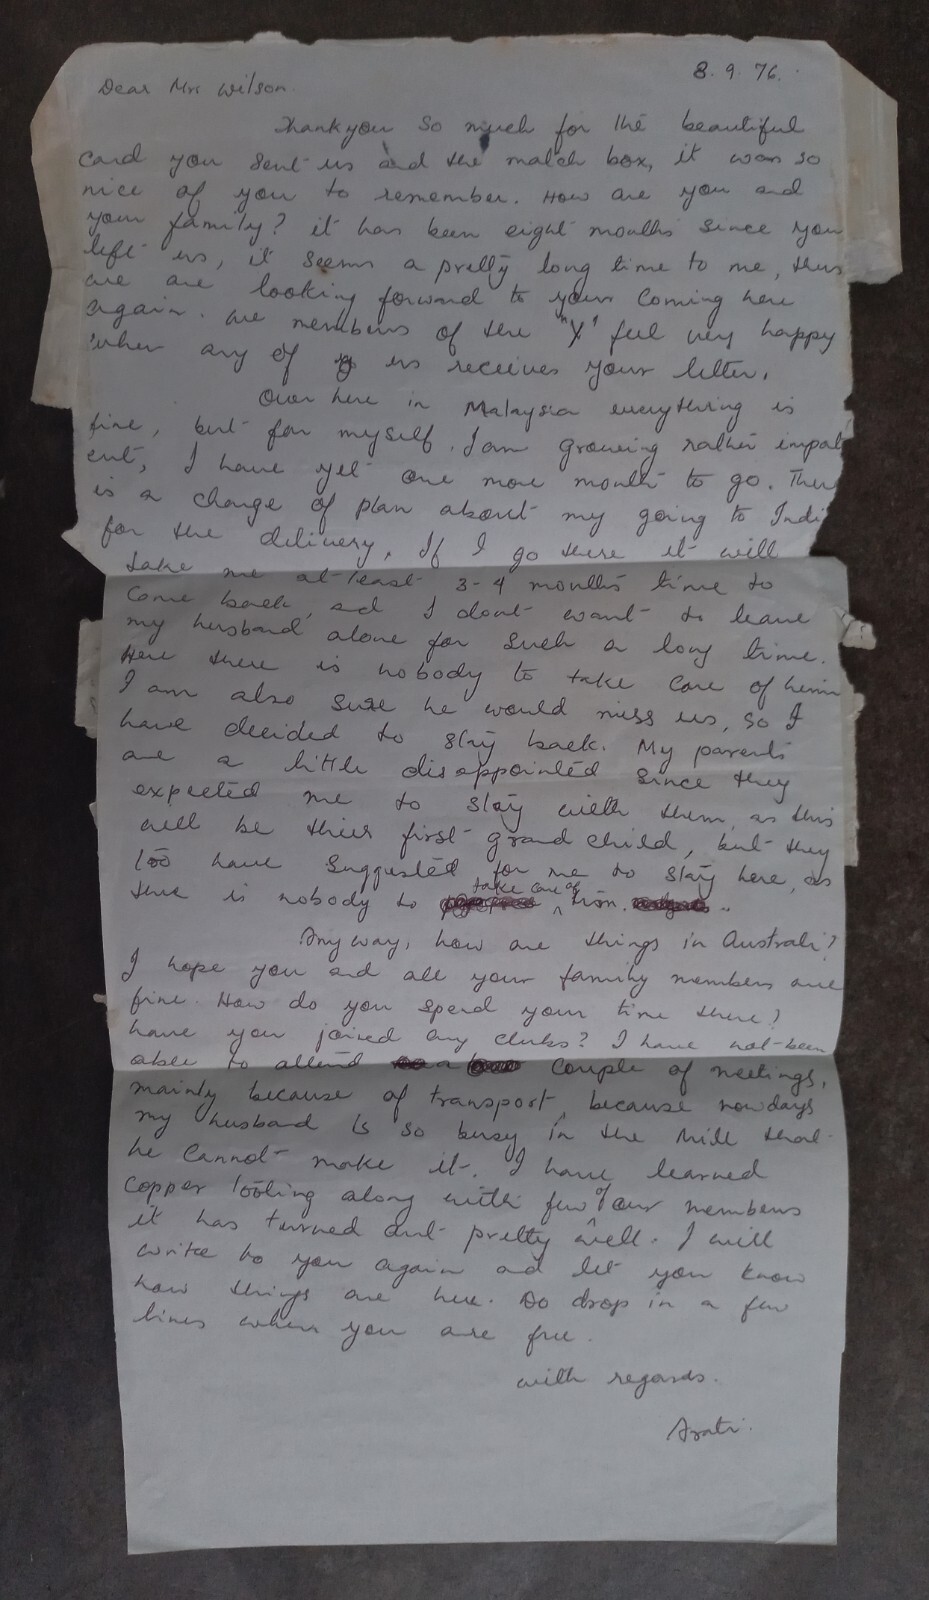 8. 9. 76.
Dear Mrs Wilson.
Thankyou so much for the beautiful
card you sent us and the match box, it was so
nice of you to remember. How are you and
your family? it has been eight months since you
left us, it seems a pretty long time to me, thus
we are looking forward to your coming here
again. We members of the "Y" feel very happy
when any of us receives your letter.
Over here in Malaysia everything is
fine, but for myself. I am growing rather impat
ent, I have yet one more month to go. There
is a change of plan about my going to Indi
for the delivery, If I go there it will
take me at-least 3-4 months time to
come back, ad I dont want to leave
my husband alone for such a long time.
Here there is nobody to take care of him
I am also sure he would miss us, so I
have decided to stay back. My parents
are a little disappointed since they
expected me to stay with them, as this
will be thier first grand child, but they
too have suggested for me to stay here, as
there is nobody to take care of him.
Anyway, how are things in Australi?
I hope you and all your family members are
fine. How do you spend your time there?
have you joined any clubs? I have not been
able to attend a couple of meetings,
mainly because of transport, because nowdays
my husband is so busy in the mill that
he cannot make it. I have learned
copper tooling along with few of our members
it has turned out pretty well. I will
write to you again ad let you know
how things are here. Do drop in a few
lines when you are free.
with regards.
Arati.